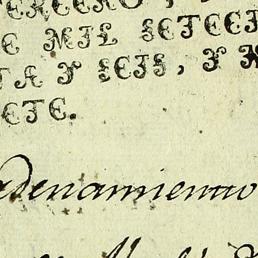 ERCERO,
E MIL SETECI
TA Y SEIS, Y
ETE.
denamiento